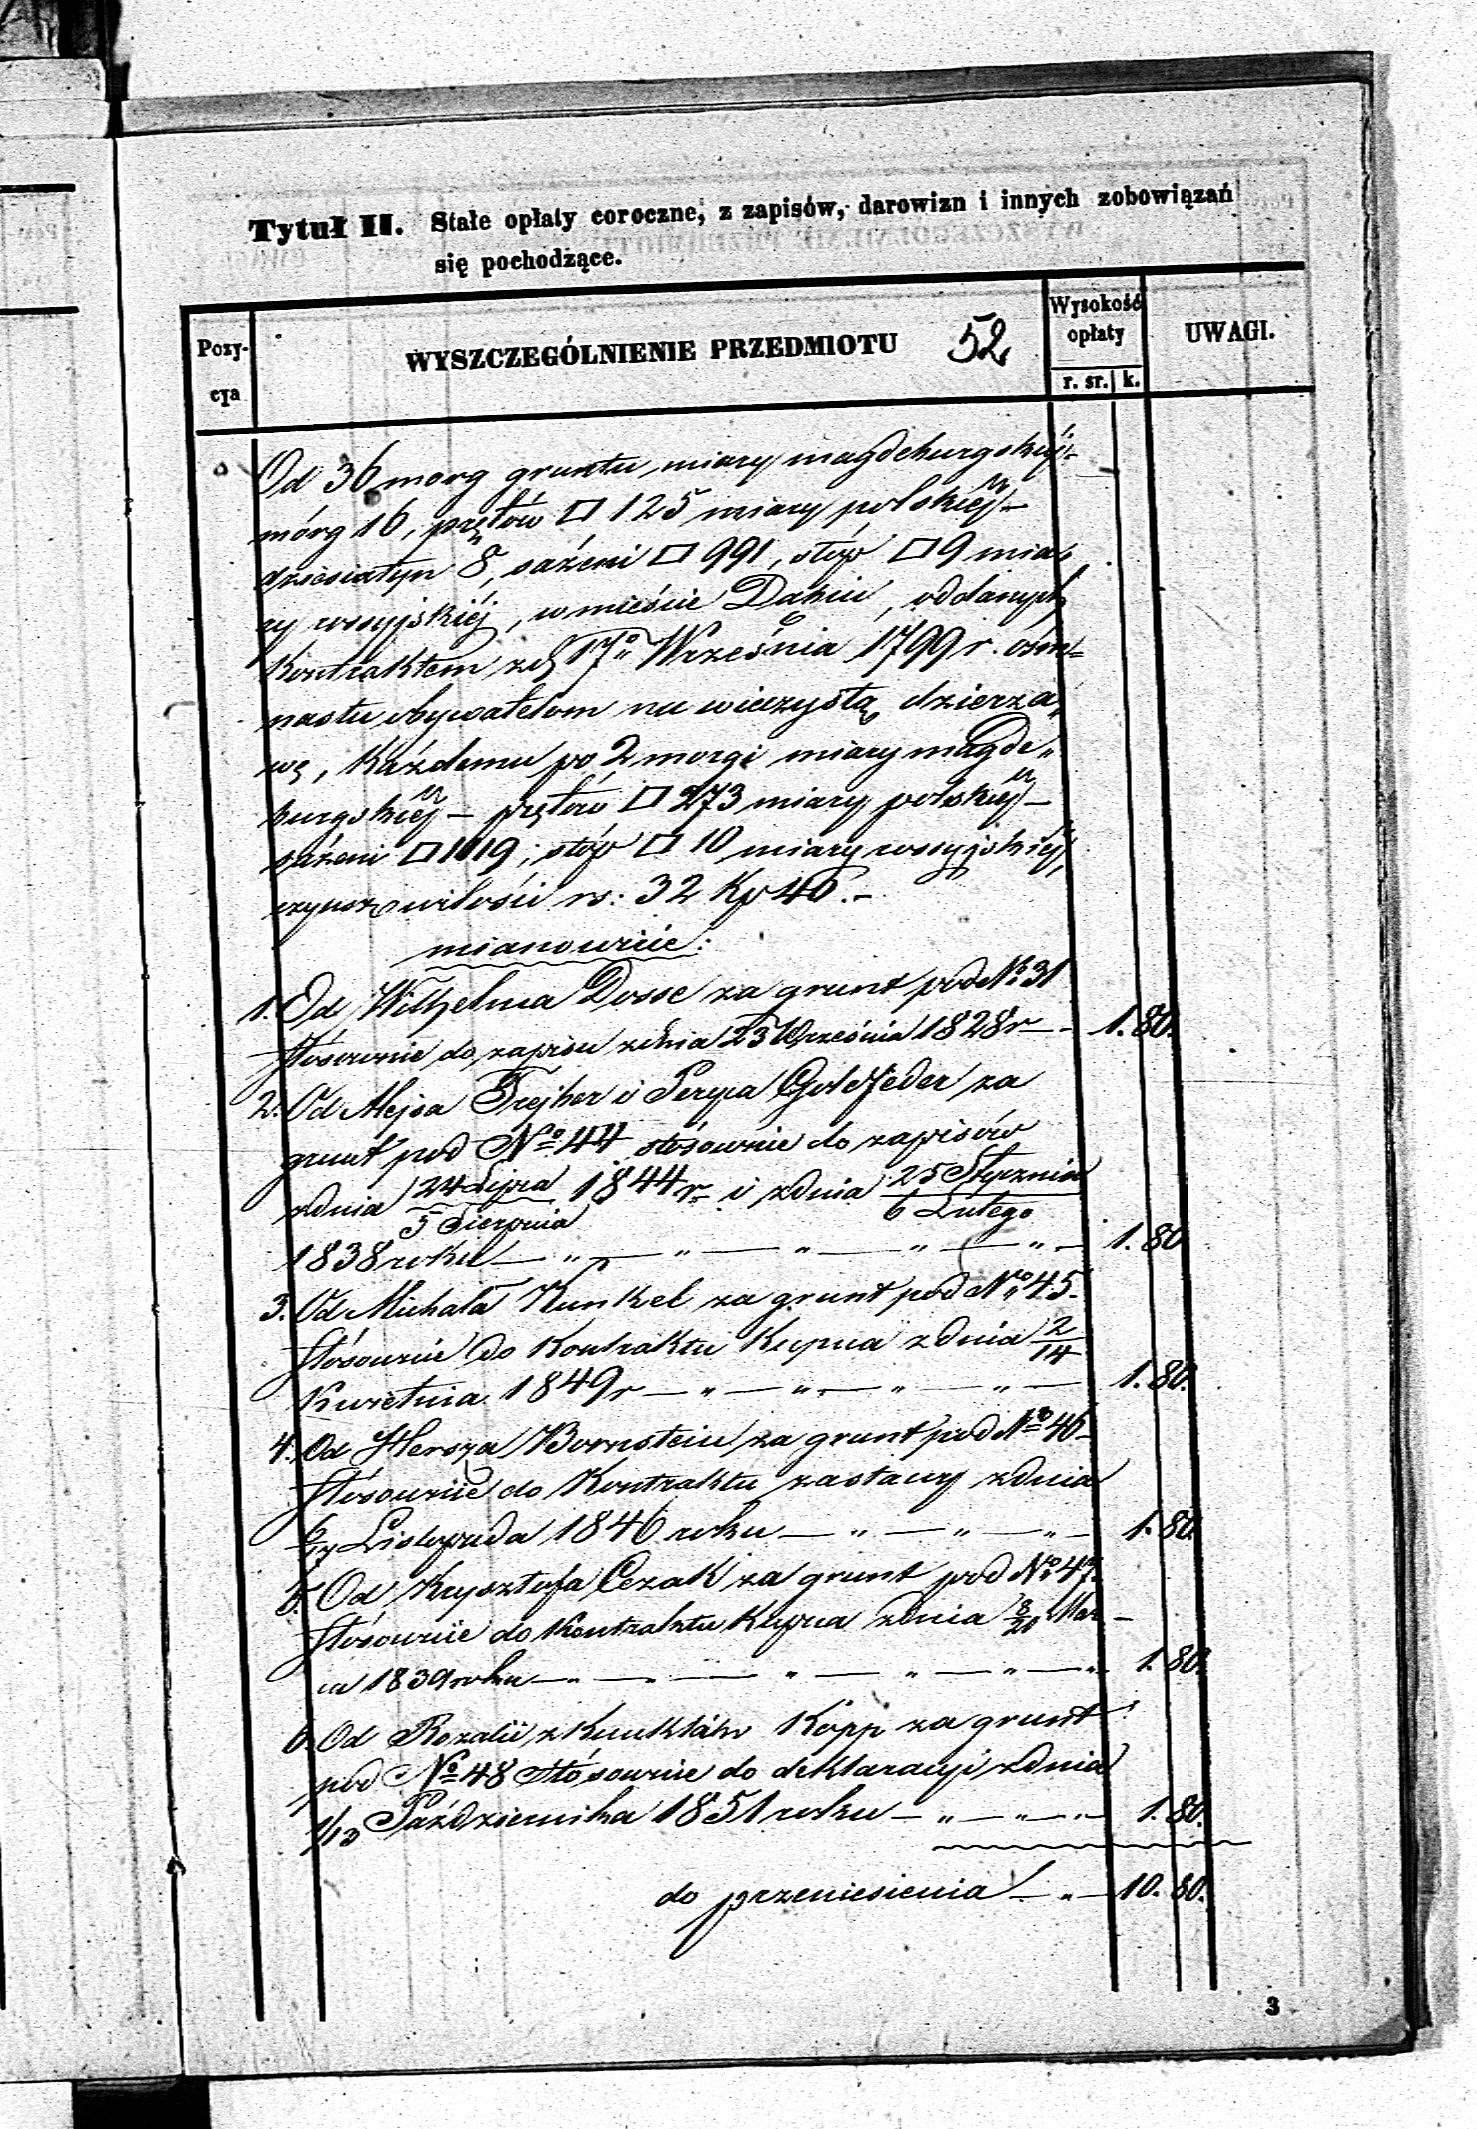 Tytuł II. Stałe opłaty coroczne, z zapisów, darowizn i innych zobowiązań
się pochodzące.
Pozy-
cya
WYSZCZEGÓLNIENIE PRZEDMIOTU 52
Wysokość
opłaty
r. sr. k.
UWAGI.
Od 36 morg gruntu miary magdeburgskiéj
mórg 16, prętów □ 125 miary polskiéj –
dziesiatyn 8, sażeni □ 991, stóp □ 9 mia
ry rossyjskiéj, w mieście Dąbiu, oddanych
Kontraktem z d. 17º Września 1799 r. ośm=
nastu obywatelom na wieczystą dzierża„
wę, każdemu po 2 morgi miary magde„
burgskiéj – prętów □ 273 miary polskiéj –
sażeni □ 1019; stóp □ 10 miary rossyjskiéj,
czynsz w ilości rs: 32 Kp 40. –
mianowicie:
1. Od Wilhelma Dosse za grunt pod Nº 31
stósownie do zapisu z dnia 23 Września 1828 r – 1. 80.
2. Od Mejsa Frejher i Perya Goldfeder za
grunt pod Nº 44 stósownie do zapisów
z dnia 24 Lipca / 5 Sierpnia 1844 r. i z dnia 25 Stycznia / 6 Lutego
1838 roku — „ — „ — „ — „ — „ — 1. 80
3. Od Michała Kunkel za grunt pod Nº 45.
stósownie do Kontraktu Kupna z dnia 2/14
Kwietnia 1849 r — „ — „ — „ — „ — 1. 80.
4. Od Hersza Bornstein za grunt pod Nº 46
stósownie do Kontraktu zastawy z dnia
5/17 Listopada 1846 roku — „ — „ — „ — 1. 80.
5. Od Krysztofa Cezak za grunt pod Nº 47.
stósownie do Kontraktu Kupna z dnia 8/20 Mar –
ca 1839 roku — „ — „ — „ — „ — „ — „ 1. 80.
6. Od Rozalii z Kunklów Kopp za grunt
pod Nº 48 stósownie do deklaracyi z dnia
1/13 Października 1851 roku — „ — „ — „ — 1. 80.
do przeniesienia — „ — 10. 80.
3